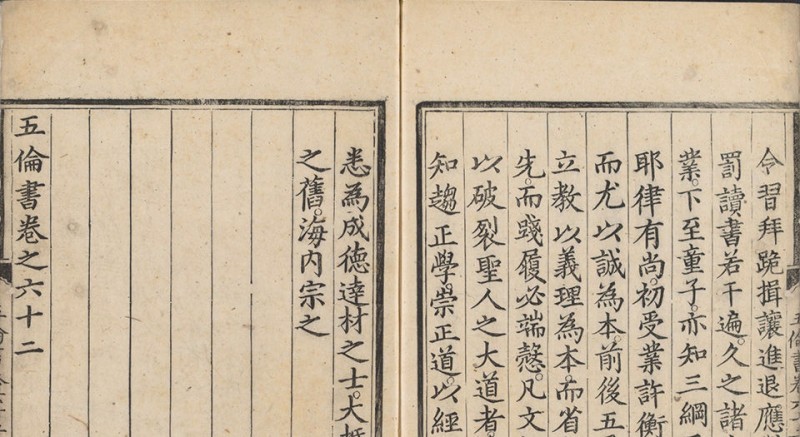 令習拜跪揖讓進退應
罰讀書若干遍。久之諸
業。下至童子。亦知三綱
耶律有尚。初受業許衡
而尤以誠為本。前後五
立教以義理為本。而省
先。而踐履必端愨。凡文
以破裂聖人之大道者
知趨正學。崇正道。以經
悉為成德達材之士。大抵
之舊。海内宗之
五倫書卷之六十二